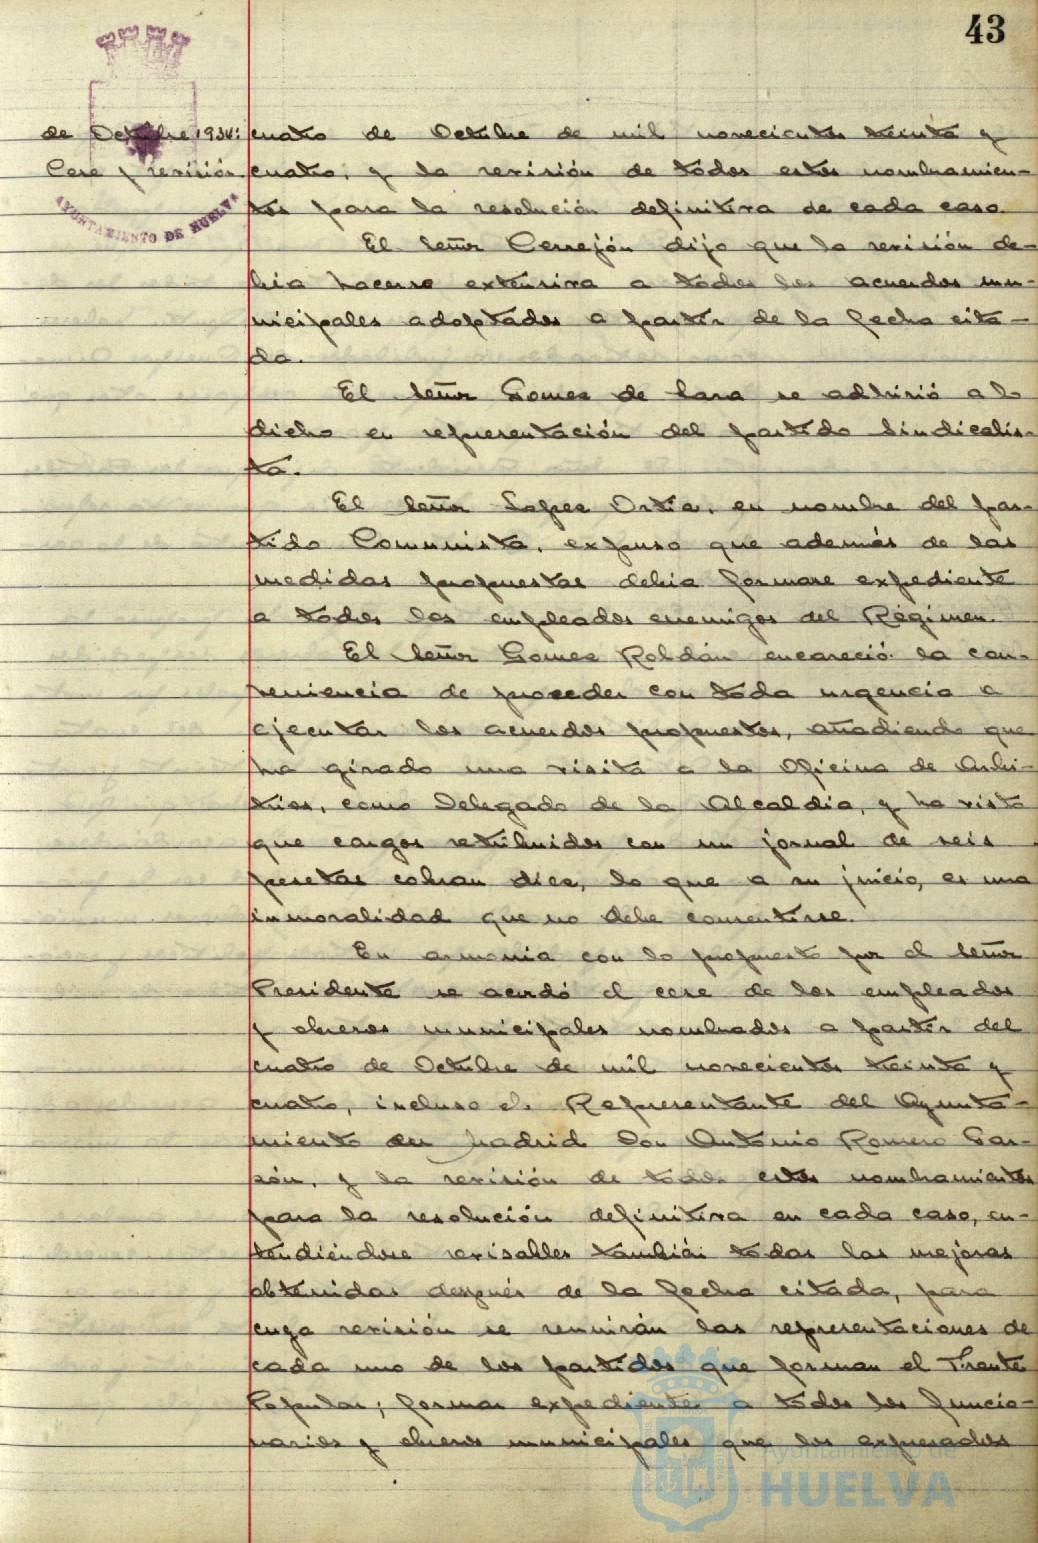 43
de Octubre 1934:
Cese y revisión.
AYUNTAMIENTO DE HUELVA
cuatro de Octubre de mil novecientos treinta y
cuatro; y la revisión de todos estos nombramien-
tos para la resolución definitiva de cada caso.
El Señor Cerrejón dijo que la revisión de-
bía hacerse extensiva a todos los acuerdos mu-
nicipales adoptados a partir de la fecha cita-
da.
El Señor Gomez de Lara se adhirió a lo
dicho en representación del partido Sindicalis-
ta.
El Señor Lopez Ortiz, en nombre del par-
tido Comunista, expuso que además de las
medidas propuestas debia formarse expediente
a todos los empleados enemigos del Régimen.
El Señor Gomez Roldán encareció la con-
veniencia de proceder con toda urgencia a
ejecutar los acuerdos propuestos, añadiendo que
ha girado una visita a la Oficina de Arbi-
trios, como Delegado de la Alcaldia, y ha visto
que cargos retribuidos con un jornal de seis
pesetas cobran diez, lo que a su juicio, es una
inmoralidad que no debe consentirse.
En armonia con lo propuesto por el Señor
Presidente se acordó el cese de los empleados
y obreros municipales nombrados a partir del
cuatro de Octubre de mil novecientos treinta y
cuatro, incluso el Representante del Ayunta-
miento en Madrid Don Antonio Romero Gar-
zón, y la revisión de todos estos nombramientos
para la resolución definitiva en cada caso, en-
tendiéndose revisables también todas las mejoras
obtenidas después de la fecha citada, para
cuya revisión se reunirán las representaciones de
cada uno de los partidos que forman el Frente
Popular; formar expedientes a todos los funcio-
narios y obreros municipales que los expresados
Ayuntamiento de
HUELVA